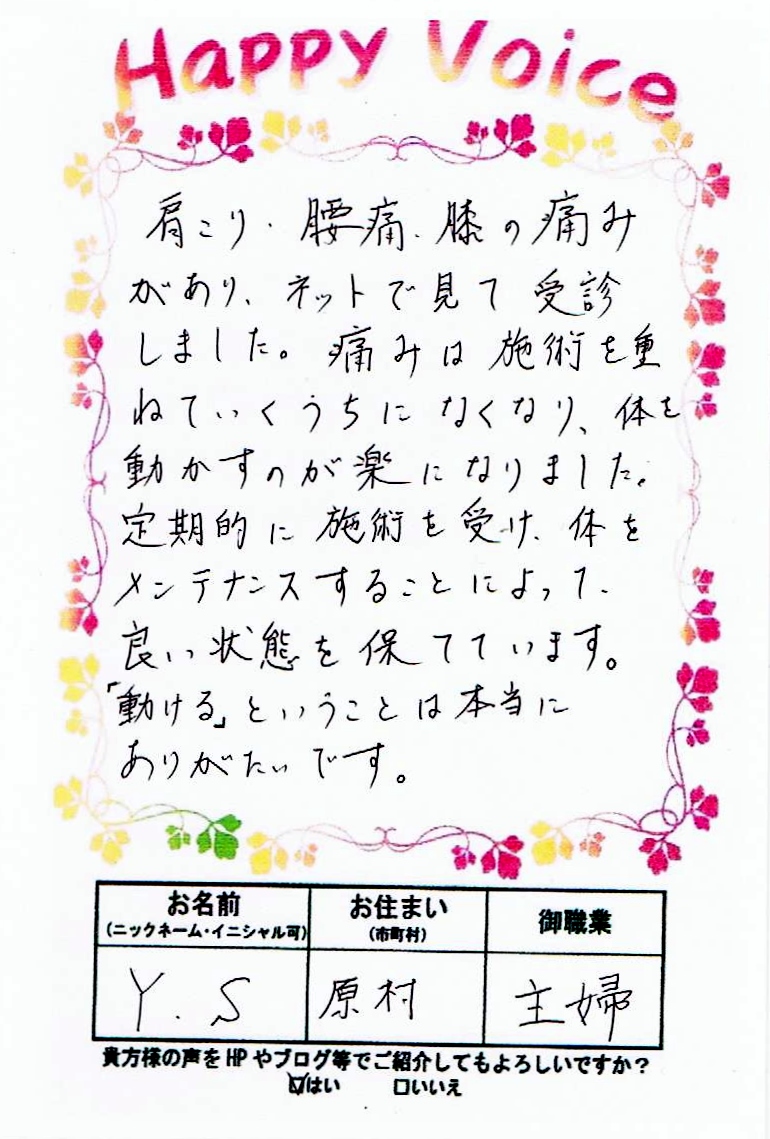 Happy Voice
肩こり・腰痛、膝の痛み
があり、ネットで見て受診
しました。痛みは施術を重
ねていくうちになくなり、体を
動かすのが楽になりました。
定期的に施術を受け、体を
メンテナンスすることによって、
良い状態を保てています。
「動ける」ということは本当に
ありがたいです。
お名前 お住まい 御職業
(ニックネーム・イニシャル可) (市町村)
Y.S 原村 主婦
貴方様の声をHPやブログ等でご紹介してもよろしいですか?
☑はい □いいえ